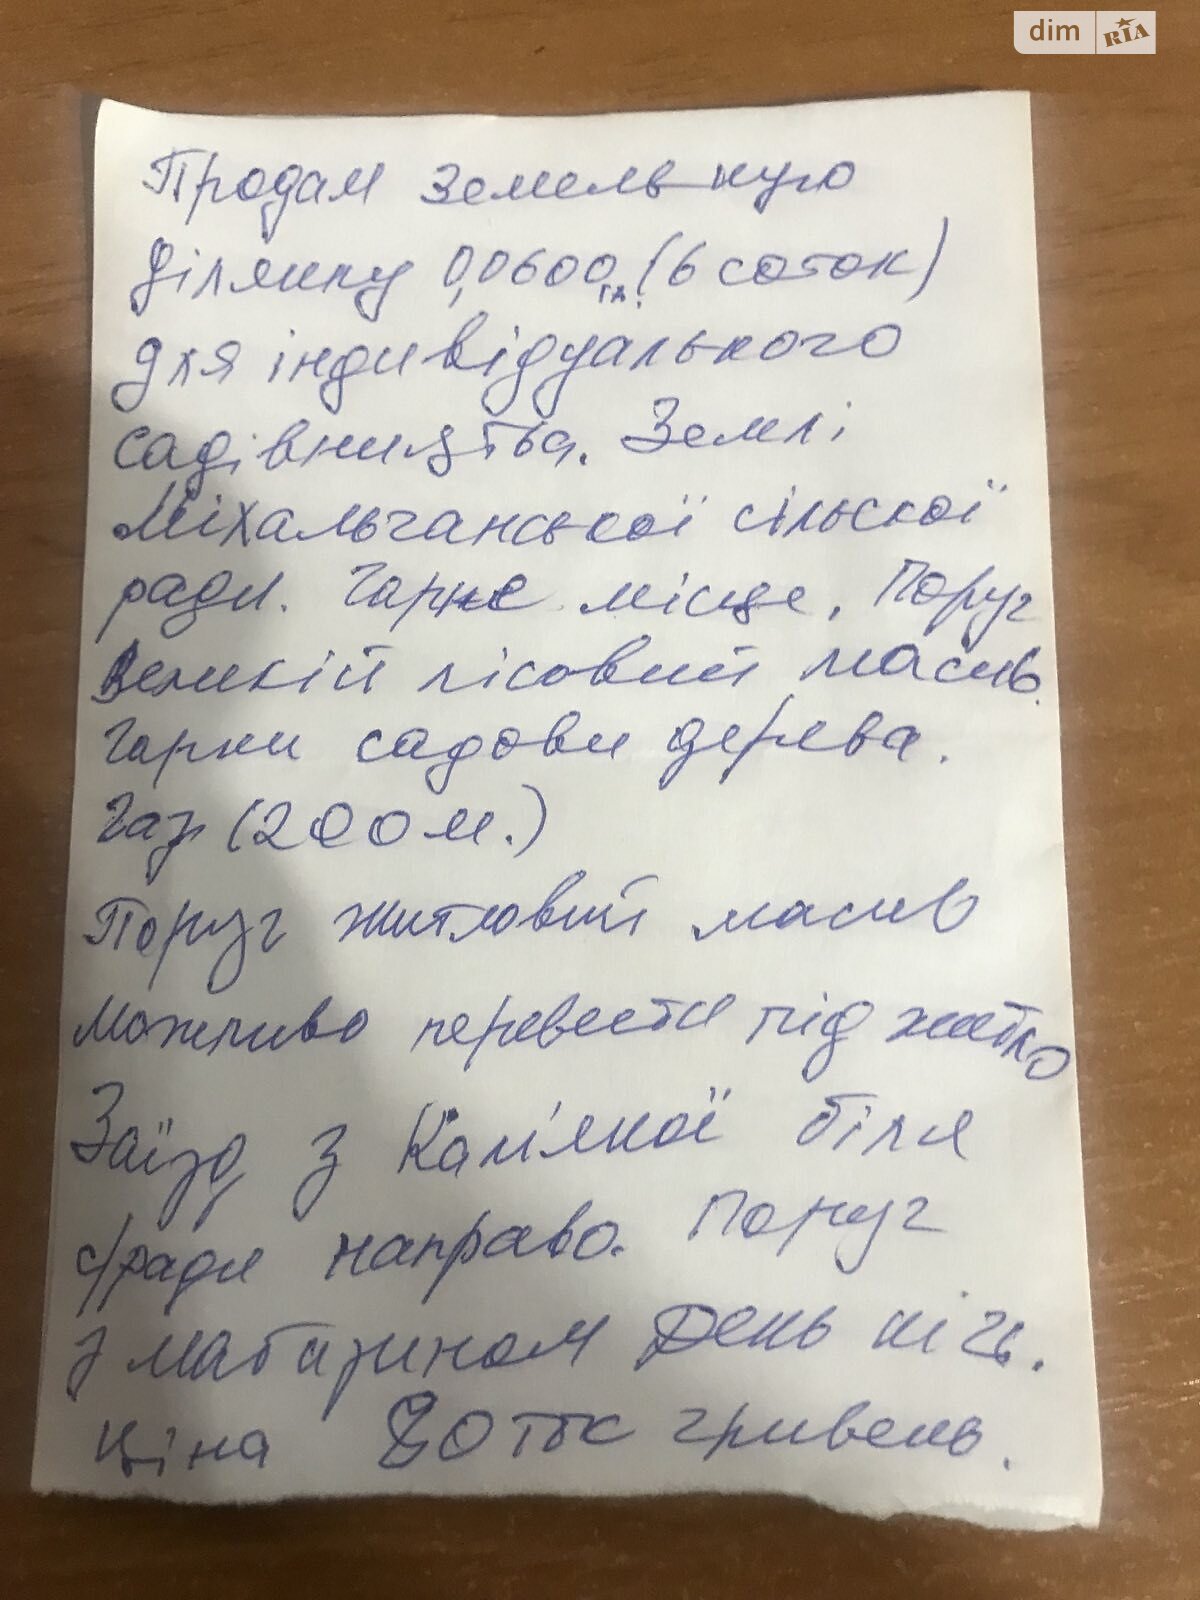 dim RIA
Продам земельную
ділянку 0,0600 га. (6 соток)
для індивідуального
садівництва. Землі
Міхальчанської сільскої
ради. Гарне місце. Поруч
Великій лісовий масив.
Гарни садови дерева.
Газ (200 м.)
Поруч житловий масив
Можливо перевести під житло
Заїзд з Кам'яної біля
с/ради направо. Поруч
з магазином День ніч.
Ціна 80 тис гривень.